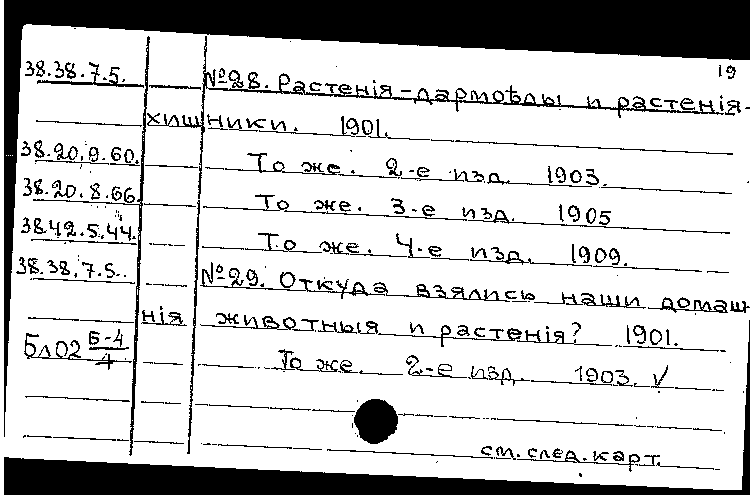 19
38.38.7.5. №28. Растенія-дармоѣды и растенія-
хищники. 1901.
38.20.9.60. То же. 2-е изд. 1903.
38.20.8.66. То же. 3-е изд. 1905
38.42.5.44. То же. 4-е изд. 1909.
38.38.7.5. №29. Откуда взялись наши домаш
нія животныя и растенія? 1901.
Бл02 Б-4/4 То же. 2-е изд. 1903. √
см. след. карт.